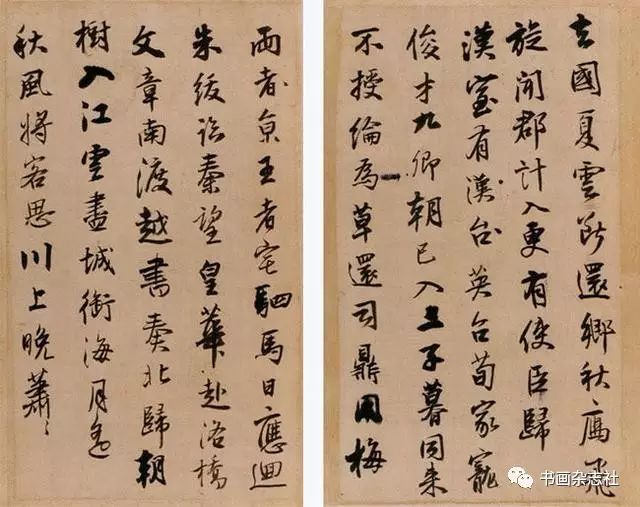 去國夏雲斷還鄉秋鴈飛
旋聞郡計入更有使臣歸
漢室有漢台英台荀家寵
俊才九卿朝已入三子暮同来
不授綸為草還司鼎用梅
兩者京王者宅駟馬日應迴
朱紱臨秦望皇華赴洛橋
文章南渡越書奏北歸朝
樹入江雲盡城銜海月遙
秋風將客思川上晚蕭々
书画杂志社